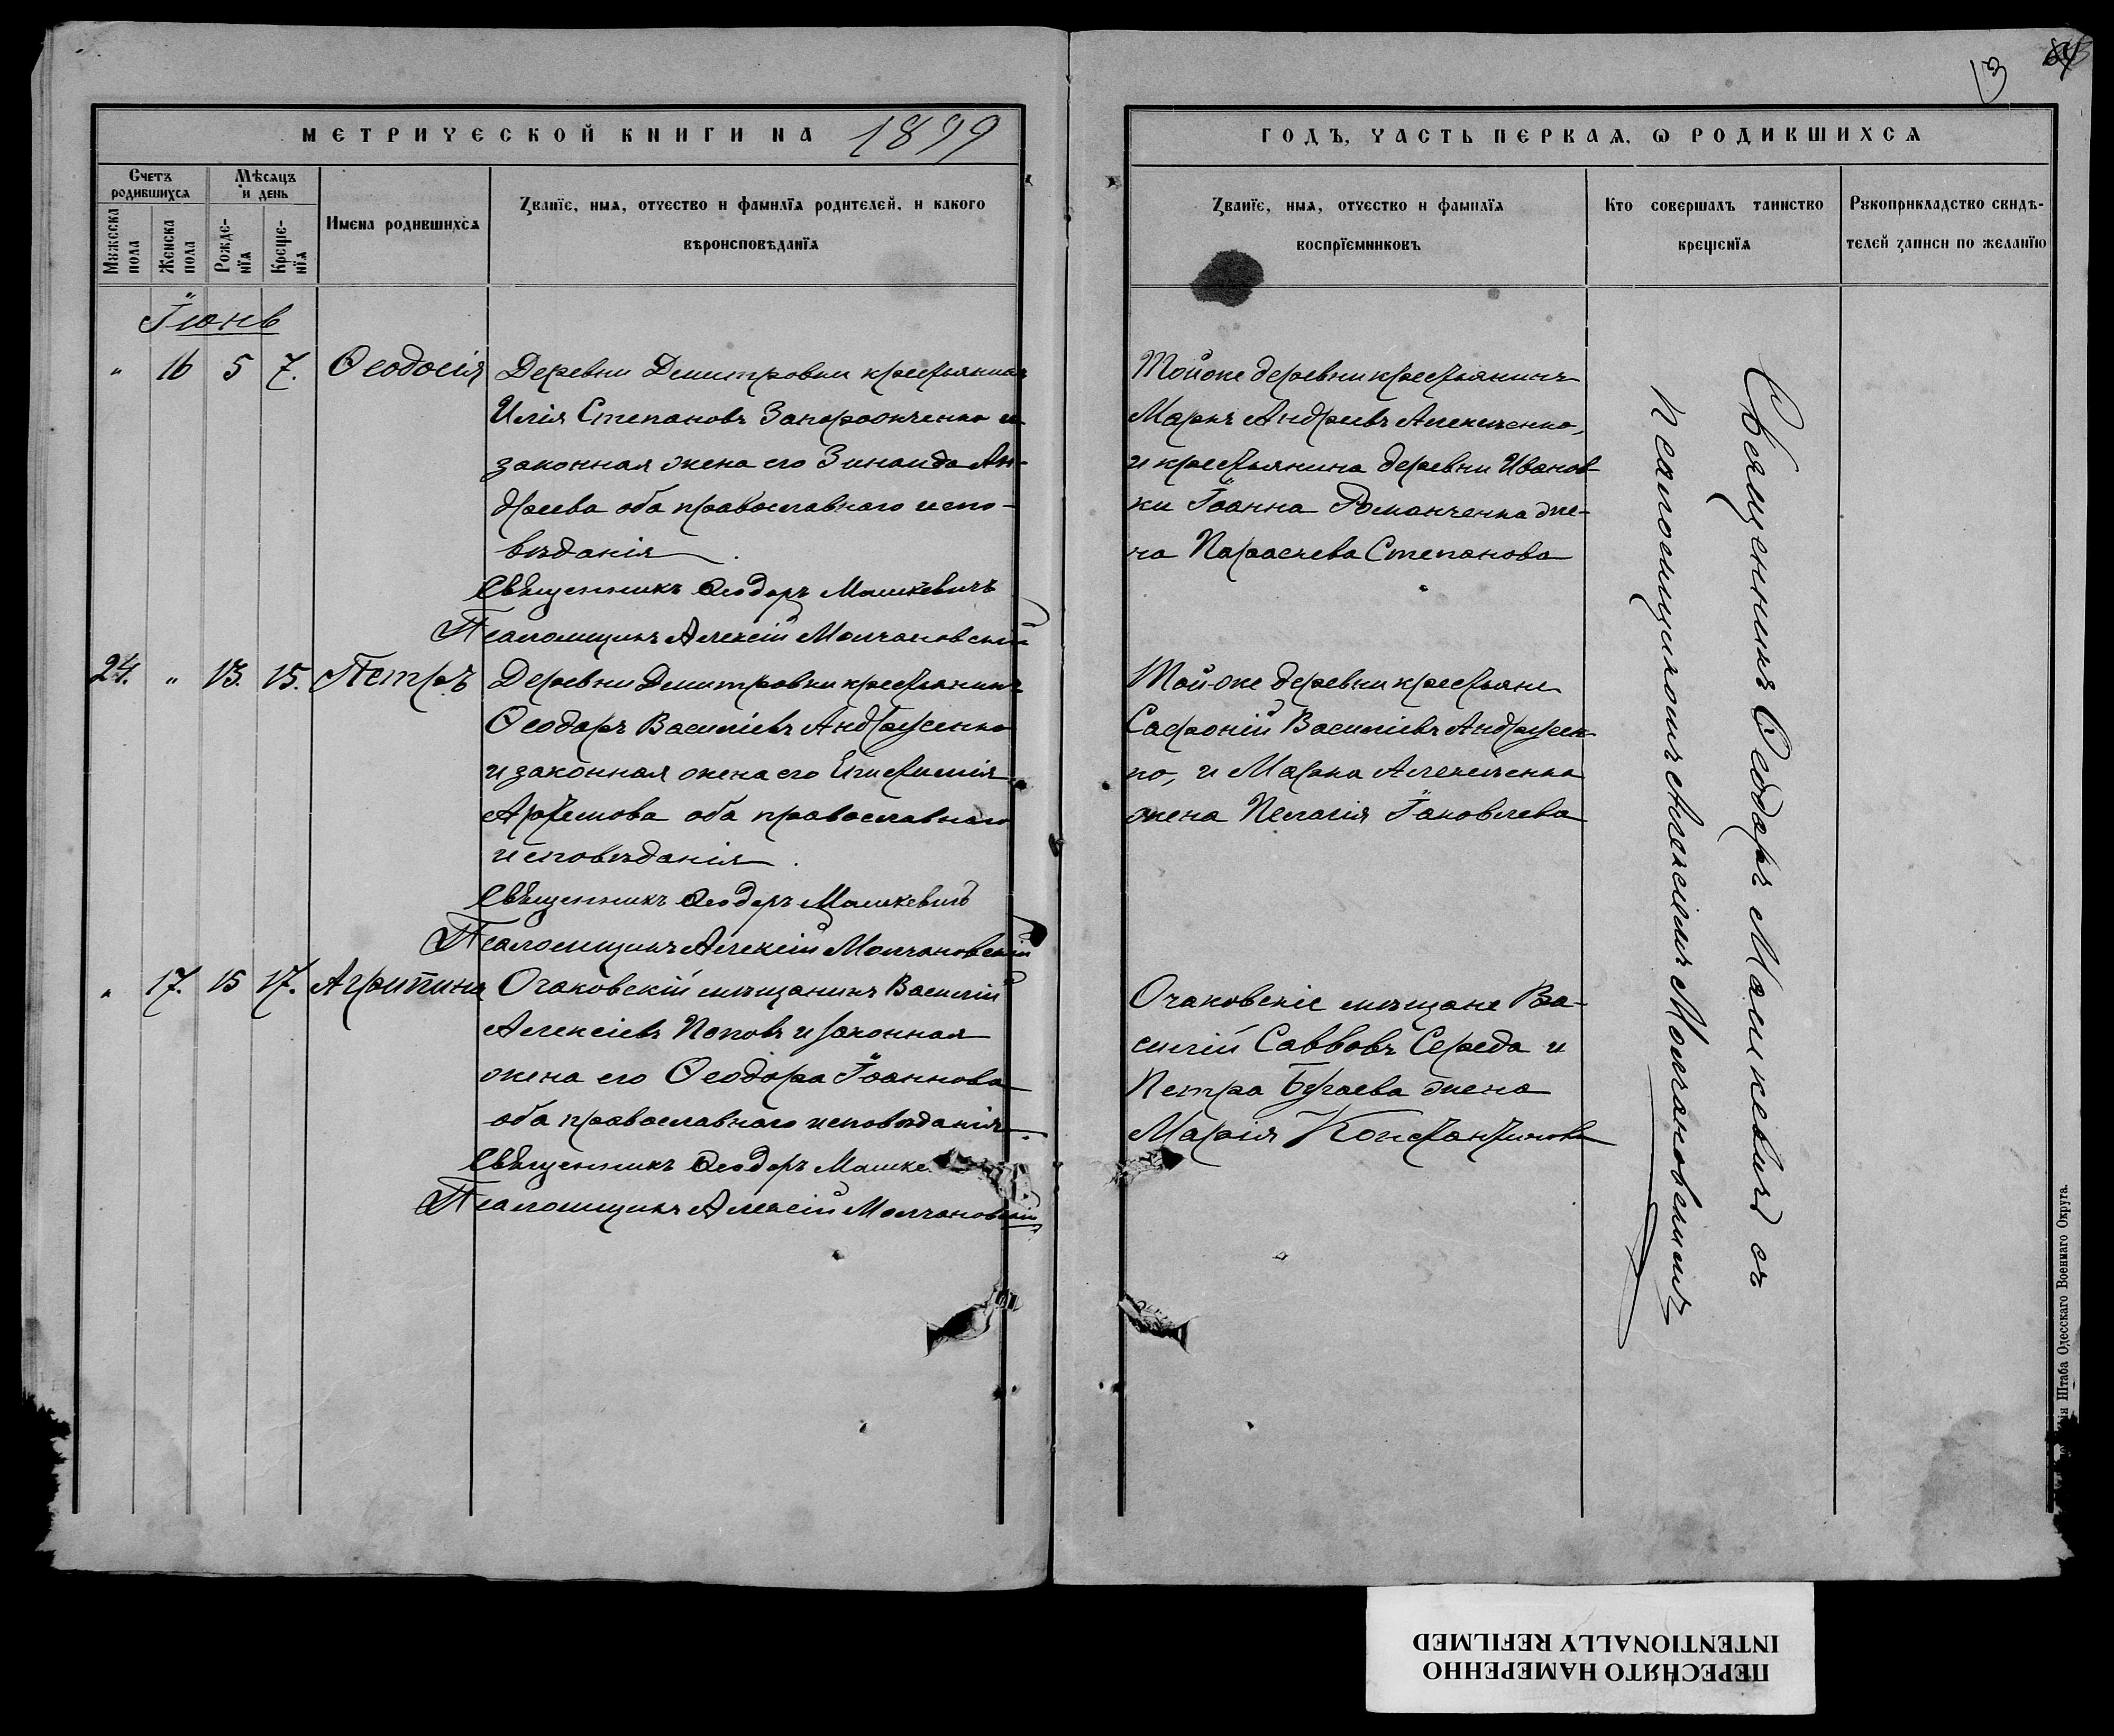 13
МЕТРИЧЕСКОЙ КНИГИ НА 1899
ГОДЪ, ЧАСТЬ ПЕРВАЯ, Ѡ РОДИВШИХСЯ
Счетъ родившихся
Мѣсяцъ и день
Мужеска пола
Женска пола
Рожде-нїя
Креще-нїя
Имена родившихся
Званїе, имя, отчество и фамилїя родителей, и какого
вѣроисповѣданїя
Званїе, имя, отчество и фамилїя
воспрїемниковъ
Кто совершалъ таинство
крещенїя
Рукоприкладство свидѣ-
телей записи по желанїю
Іюнь
" 16 5 7. Ѳеодосія
Деревни Димитровки крестьянинъ
Илія Степановъ Запорожченко и
законная жена его Зинаида Ан-
дреева оба православнаго испо-
вѣданія.
Священникъ Ѳеодоръ Машкевичъ
Псаломщикъ Алексій Молчановскій
Тойже деревни крестьянинъ
Маркъ Андреевъ Алексѣенко,
и крестьянина деревни Иванов-
ки Іоанна Романченка же-
на Параскева Степанова
24. " 13. 15. Петръ
Деревни Димитровки крестьянинъ
Ѳеодоръ Василіевъ Андрусенко
и законная жена его Епистимія
Артемова оба православнаго
исповѣданія.
Священникъ Ѳеодоръ Машкевичъ
Псаломщикъ Алексій Молчановскій
Тойже деревни крестьяне
Сафроній Василіевъ Андрусен-
ко, и Марка Алексѣенка
жена Пелагія Іаковлева
" 17. 15 17. Агрипина
Очаковскій мѣщанинъ Василій
Алексіевъ Поповъ и законная
жена его Ѳеодора Іоаннова
оба православнаго исповѣданія.
Священникъ Ѳеодоръ Машке
Псаломщикъ Алексій Молчановскій
Очаковскіе мѣщане Ва-
силій Савввовъ Середа и
Петра Бугаева жена
Марія Константинова
Священникъ Ѳеодоръ Машкевичъ съ
псаломщикомъ Алексіемъ Молчановскимъ
Штаба Одесскаго Военнаго Округа.
ПЕРЕСНЯТО НАМЕРЕННО
INTENTIONALLY REFILMED